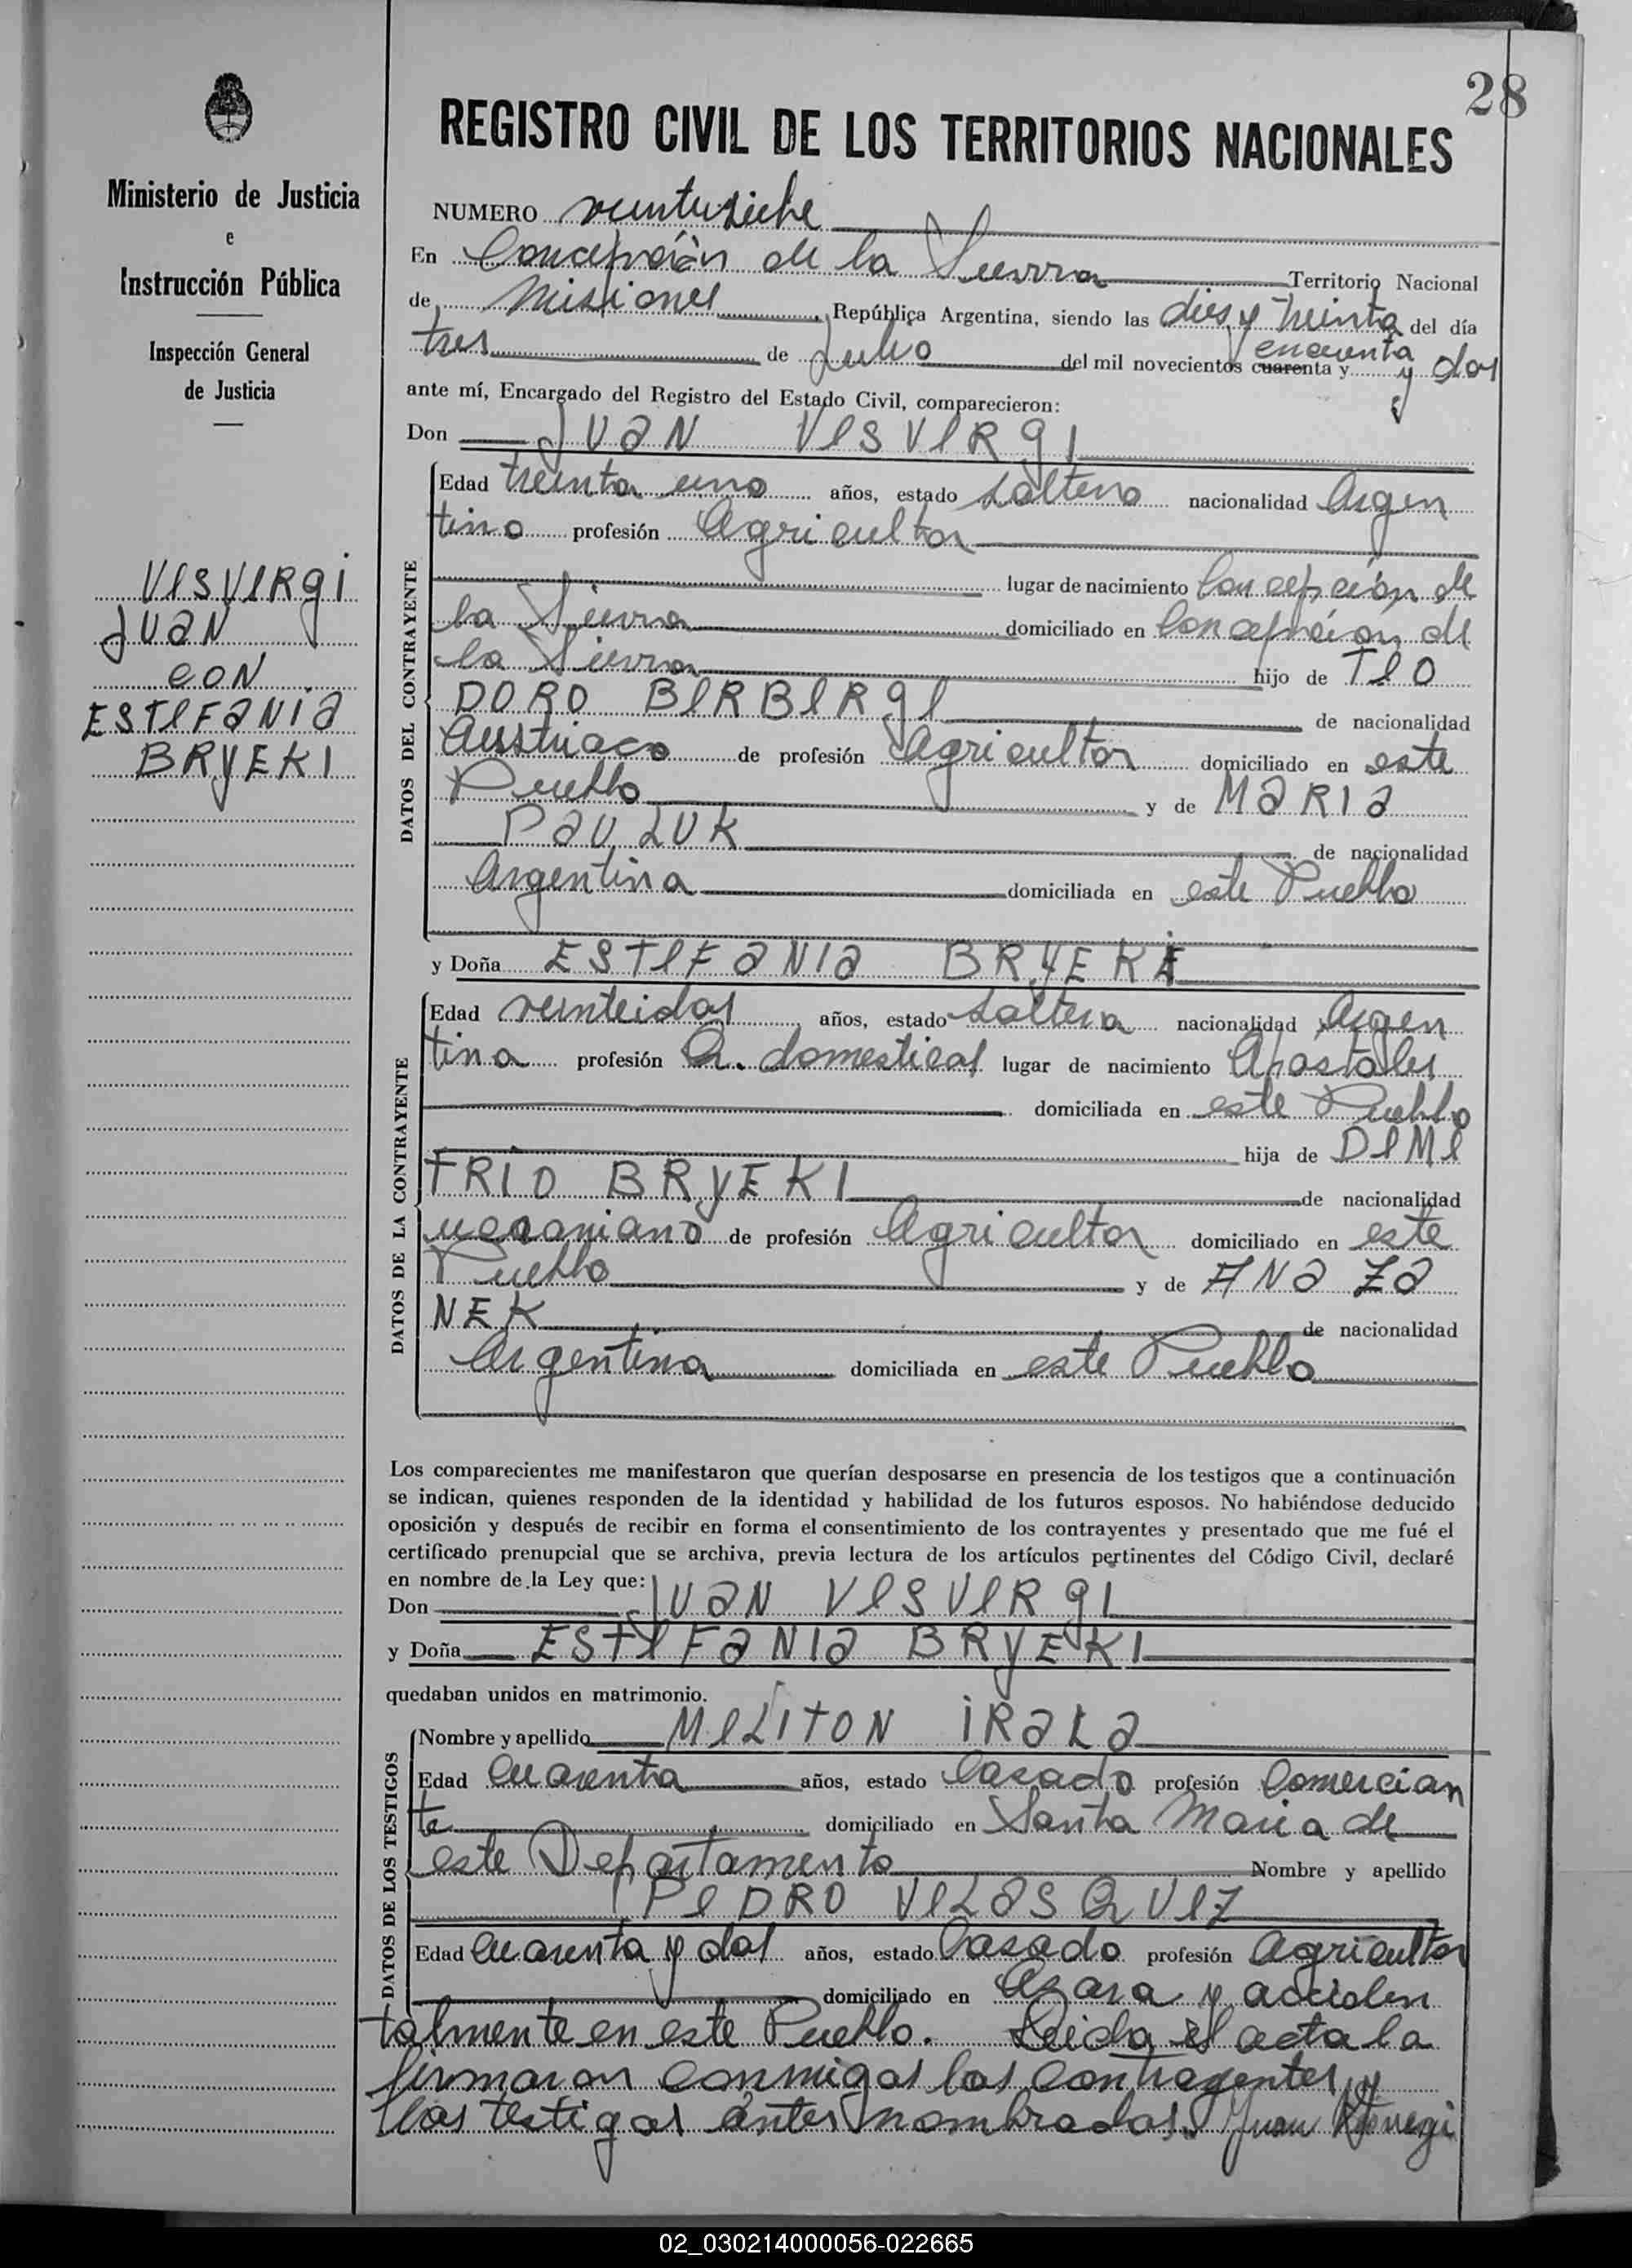 28
REGISTRO CIVIL DE LOS TERRITORIOS NACIONALES
Ministerio de Justicia
e
Instrucción Pública
Inspección General
de Justicia
VESVERgi
JUaN
CON
ESTEFaNIa
BRYEKI
NUMERO veintisiete
En Concepción de la Sierra Territorio Nacional
de Misiones, República Argentina, siendo las dies y treinta del día
tres de Julio del mil novecientos cuarenta y cincuenta y dos
ante mí, Encargado del Registro del Estado Civil, comparecieron:
Don JUaN VESVERgI
DATOS DEL CONTRAYENTE
Edad treinta uno años, estado soltero nacionalidad Argen
tino profesión Agricultor
lugar de nacimiento Concepción de
la Sierra domiciliado en Concepción de
la Sierra hijo de TEO
DORO BERBERgI de nacionalidad
Austriaco de profesión Agricultor domiciliado en este
Pueblo y de MaRIa
PaULUK de nacionalidad
Argentina domiciliada en este Pueblo
y Doña ESTEFaNIa BRYEKI
DATOS DE LA CONTRAYENTE
Edad veinteidos años, estado soltera nacionalidad Argen
tina profesión Q. domesticos lugar de nacimiento Apóstoles
domiciliada en este Pueblo
hija de DEME
TRIO BRYEKI de nacionalidad
ucraniano de profesión Agricultor domiciliado en este
Pueblo y de ANa Za
NEK de nacionalidad
Argentina domiciliada en este Pueblo
Los comparecientes me manifestaron que querían desposarse en presencia de los testigos que a continuación
se indican, quienes responden de la identidad y habilidad de los futuros esposos. No habiéndose deducido
oposición y después de recibir en forma el consentimiento de los contrayentes y presentado que me fué el
certificado prenupcial que se archiva, previa lectura de los artículos pertinentes del Código Civil, declaré
en nombre de la Ley que:
Don JUaN VESVERgI
y Doña ESTEFaNIa BRYEKI
quedaban unidos en matrimonio.
DATOS DE LOS TESTIGOS
Nombre y apellido MELITON IRaLa
Edad Cuarenta años, estado Casado profesión Comercian
te domiciliado en Santa Maria de
este Departamento Nombre y apellido
PEDRO VELaSQUEZ
Edad Cuarenta y dos años, estado Casado profesión Agricultor
domiciliado en Azara y acciden
talmente en este Pueblo. Leida el acta la
firmaron conmigo los contrayentes y
los testigos antes nombrados. Juan
02_030214000056-022665